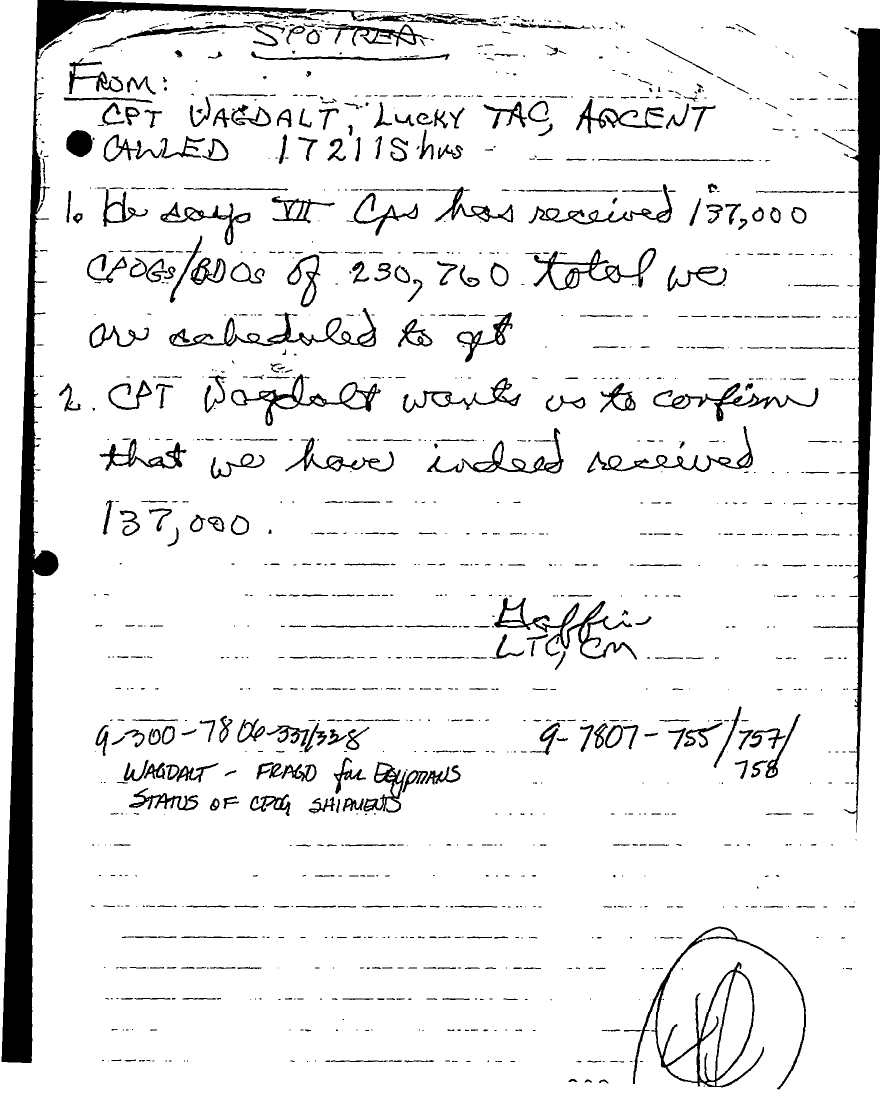 SPOTREA
FROM:
CPT WAGDALT, LUCKY TAC, ARCENT
CALLED 172115 hrs -
1. He says VII Cps has received 137,000
CPOGs/BDOs of 230,760 total we
are scheduled to get
2. CPT Wagdalt wants us to confirm
that we have indeed received
137,000.
LTC, CM
9-300-7806-337/338
9-7807-755/757/
758
WAGDALT - FRAGO for EGYPTIANS
STATUS OF CPOG SHIPMENTS